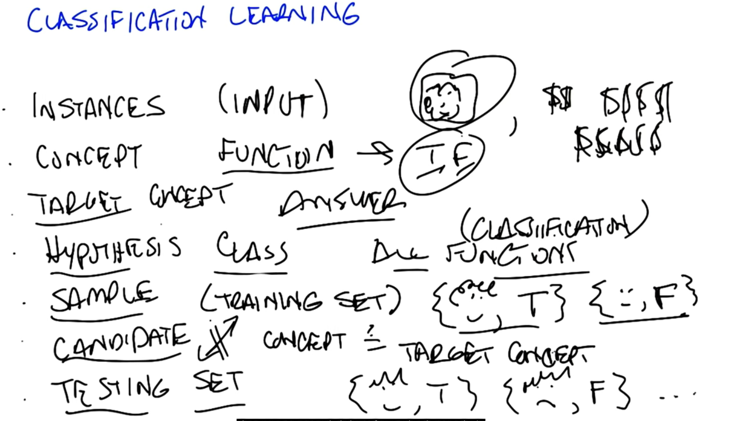 CLASSIFICATION LEARNING
INSTANCES (INPUT) , $$ $$$$
$$$$$
CONCEPT FUNCTION → T, F
TARGET CONCEPT ANSWER
HYPOTHESIS CLASS ALL FUNCTIONS (CLASSIFICATION)
SAMPLE (TRAINING SET) { , T} { , F}
CANDIDATE CONCEPT ?= TARGET CONCEPT
TESTING SET { , T} { , F} ...